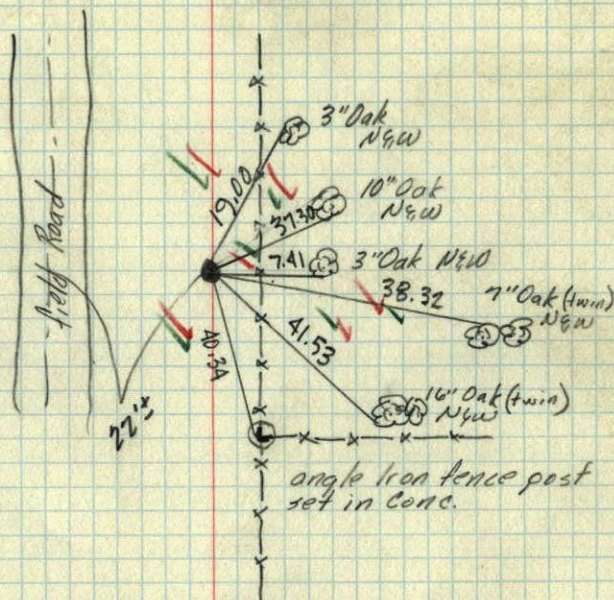 3" Oak
N&W
19.00
10" Oak
N&W
37.30
Field Road
7.41
3" Oak N&W
38.32
7" Oak (twin)
N&W
41.53
40.34
16" Oak (twin)
N&W
22'±
angle Iron fence post
set in conc.